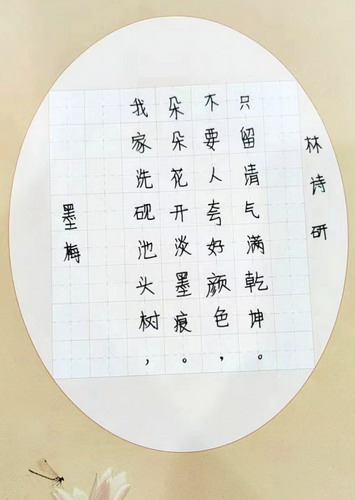 墨梅
我家洗砚池头树，
朵朵花开淡墨痕。
不要人夸好颜色，
只留清气满乾坤。
林诗研